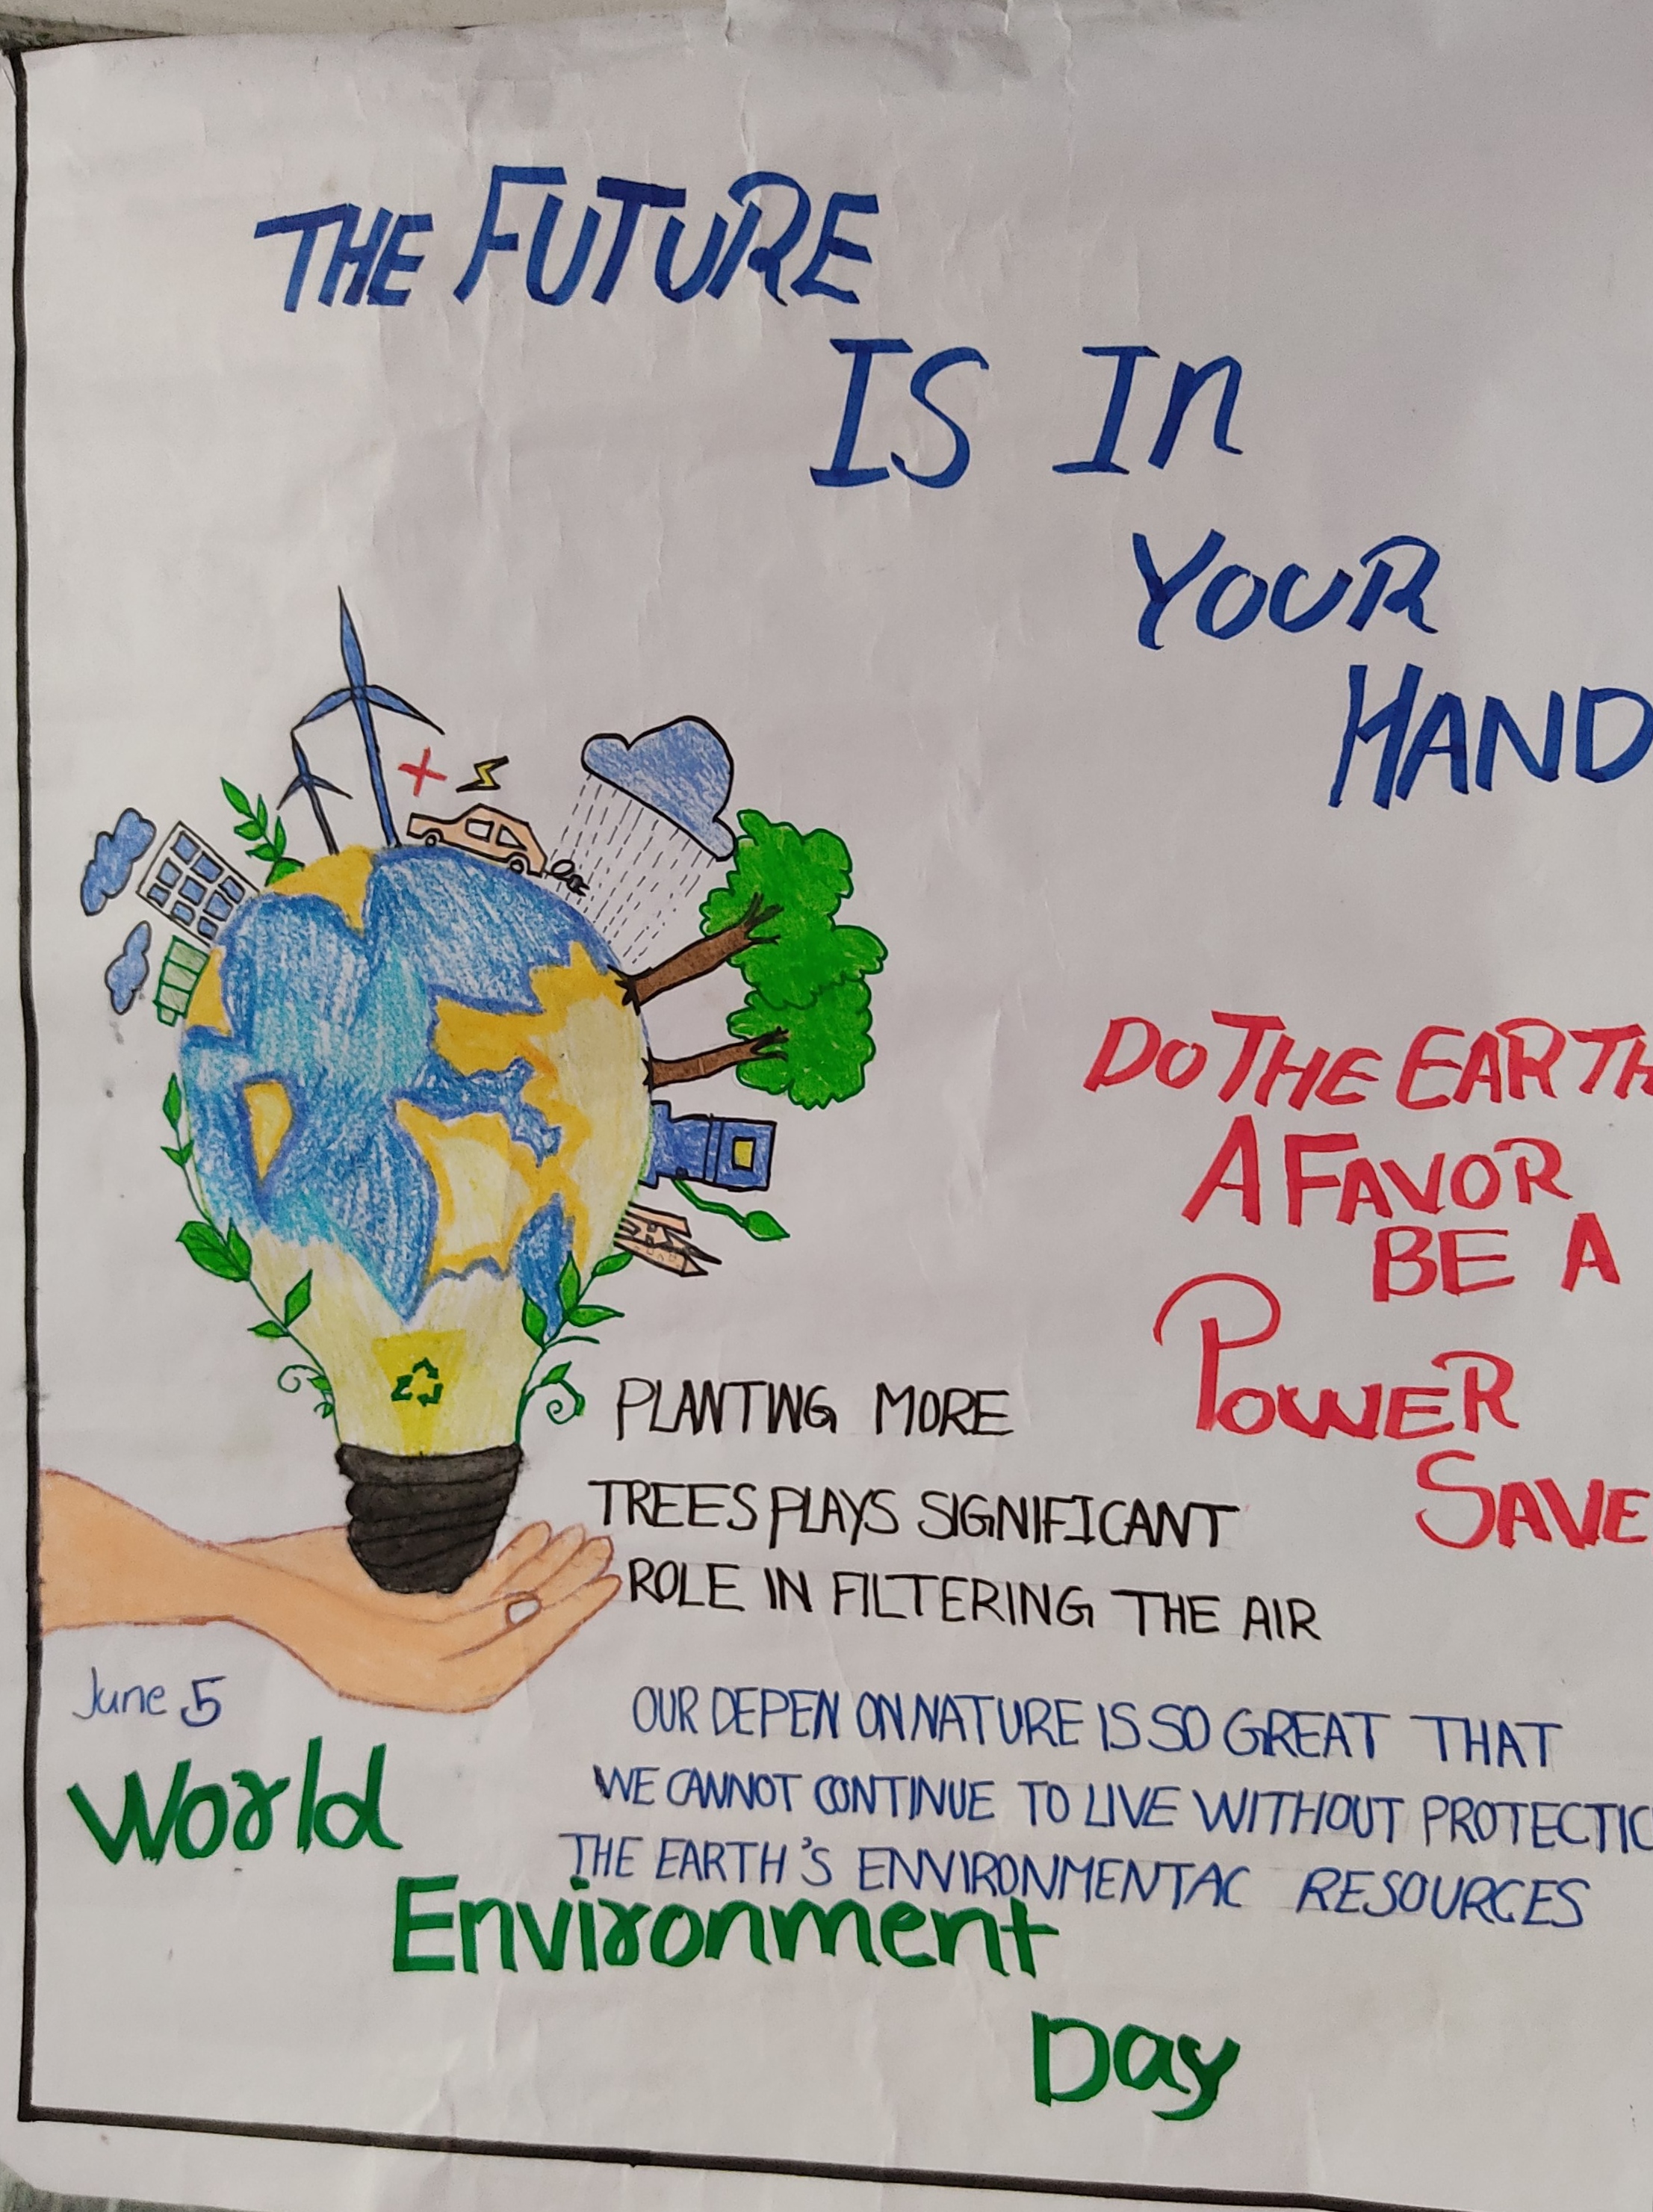 THE FUTURE
IS In
YOUR
HAND
DO THE EARTH
A FAVOR
BE A
POWER
SAVE
PLANTING MORE
TREES PLAYS SIGNIFICANT
ROLE IN FILTERING THE AIR
June 5
OUR DEPEN ON NATURE IS SO GREAT THAT
WE CANNOT CONTINUE TO LIVE WITHOUT PROTECTIO
THE EARTH'S ENVIRONMENTAC RESOURCES
World
Environment
Day